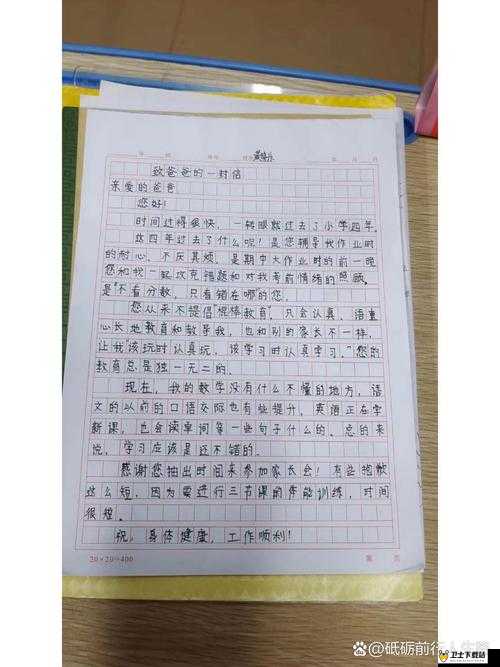 致爸爸的一封信
亲爱的爸爸
您好!
时间过得很快,一转眼就过去了小学四年。
这四年过去了什么呢!是您辅导我作业时
的耐心,不厌其烦,是期中大作业时的前一晚
您和我一起攻克错题和对我考前情绪的照顾。
是"不看分数,只看错在哪"的您。
您从来不提倡棍棒教育,只会认真、语重
心长地教育和教导我,也和别的家长不一样,
让我"该玩时认真玩,该学习时认真学习。"您的
教育总是独一无二的。
现在,我的数学没有什么不懂的地方,语
文的以前的口语交际也有些提升,英语正在学
新课,也会读单词等一些句子什么的。总的来
说,学习应该是还不错的。
感谢您抽出时间来参加家长会!有些抱歉
这么短,因为要进行三节课的体能训练,时间
很短。
祝:身体健康,工作顺利!
20×20=400
第 页
百家号/砥砺前行人生路
卫士下载站